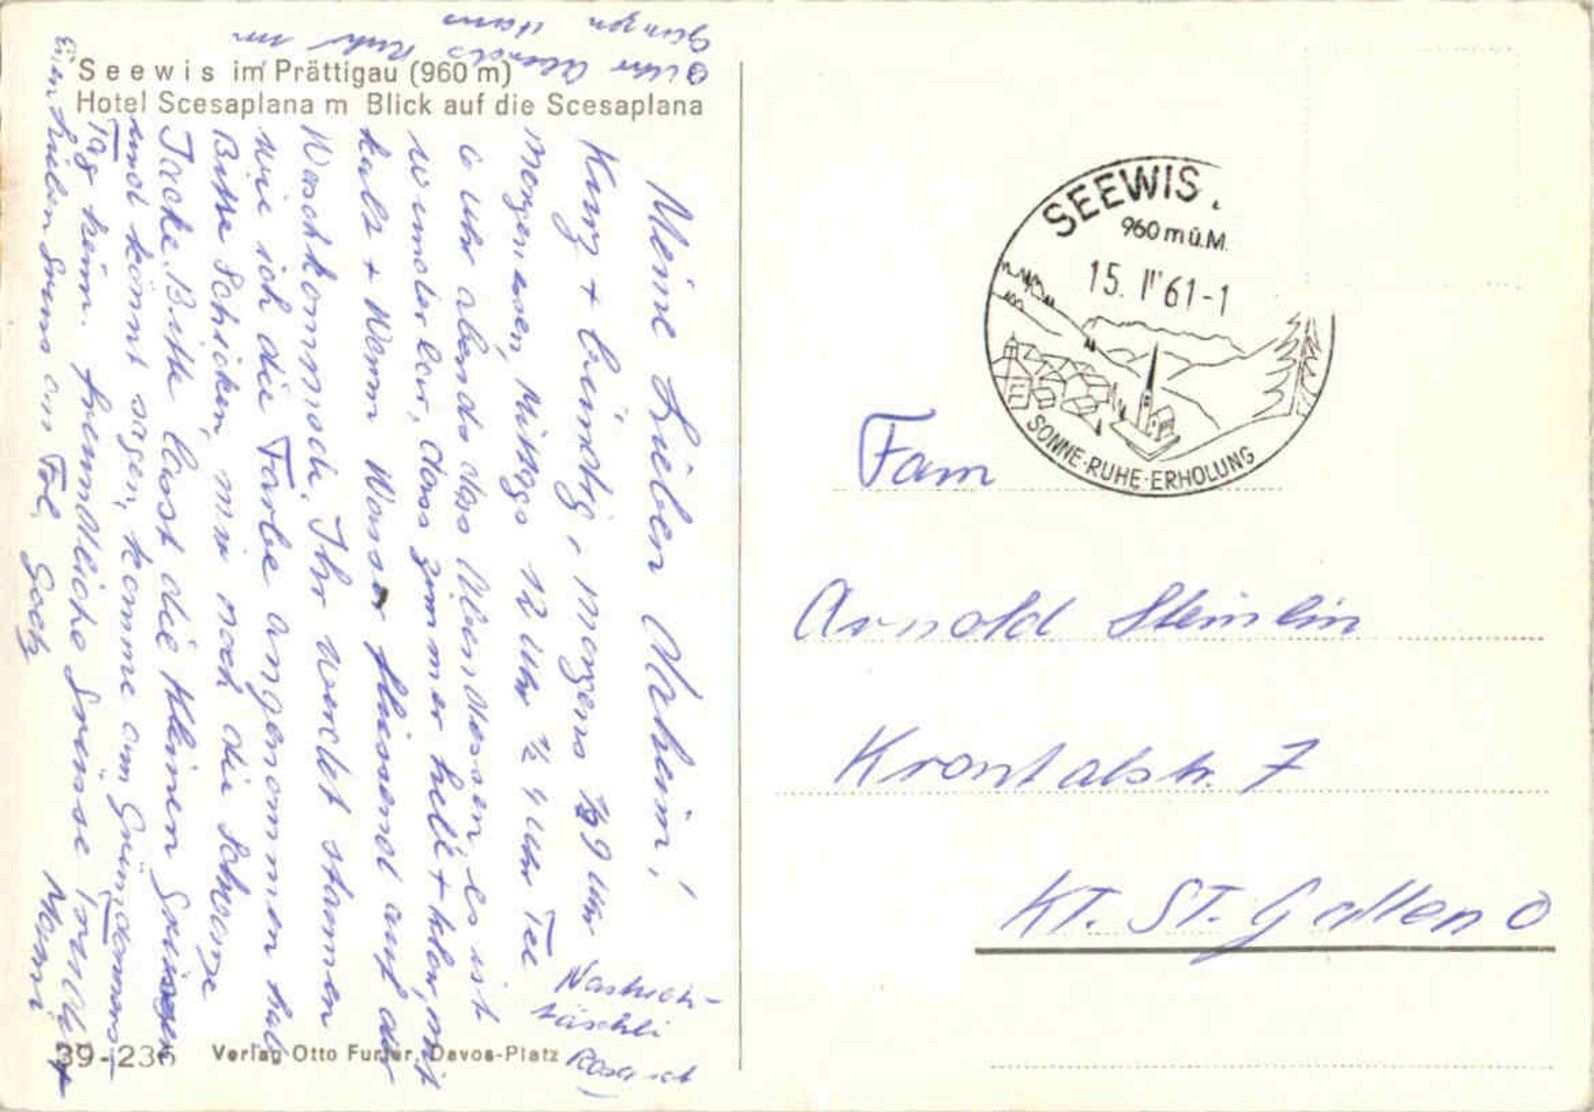 Seewis im Prättigau (960 m)
Hotel Scesaplana m Blick auf die Scesaplana
Meine Lieben Daheim!
Kurz + bündig, morgens ½9 Uhr
Morgenessen, Mittags 12 Uhr ½ 4 Uhr Tee
6 Uhr abends das Abendessen, es ist
wunderbar, das Zimmer hell + klar, mit
kalt + Warm Wasser fliessend auf der
Waschkommode. Ihr werdet staunen
wie ich die Farbe angenommen hab
Bitte Schicken mir noch die Schwarze
Jacke. Bitte lasst die Kleinen Grüssen
und könnt sagen, komme am Gründonners
Tag heim. freundliche Grüsse
Mami
Einen lieben Gruss an
Nastuch-
täschli
Rosa ist
9 Uhr Abends Ruhe im
ganzen Haus
39-236 Verlag Otto Furter, Davos-Platz
SEEWIS.
960 m ü.M.
15. III 61-1
SONNE·RUHE·ERHOLUNG
Fam
Arnold Steinlin
Krontalstr. 7
KT. ST. Gallen O